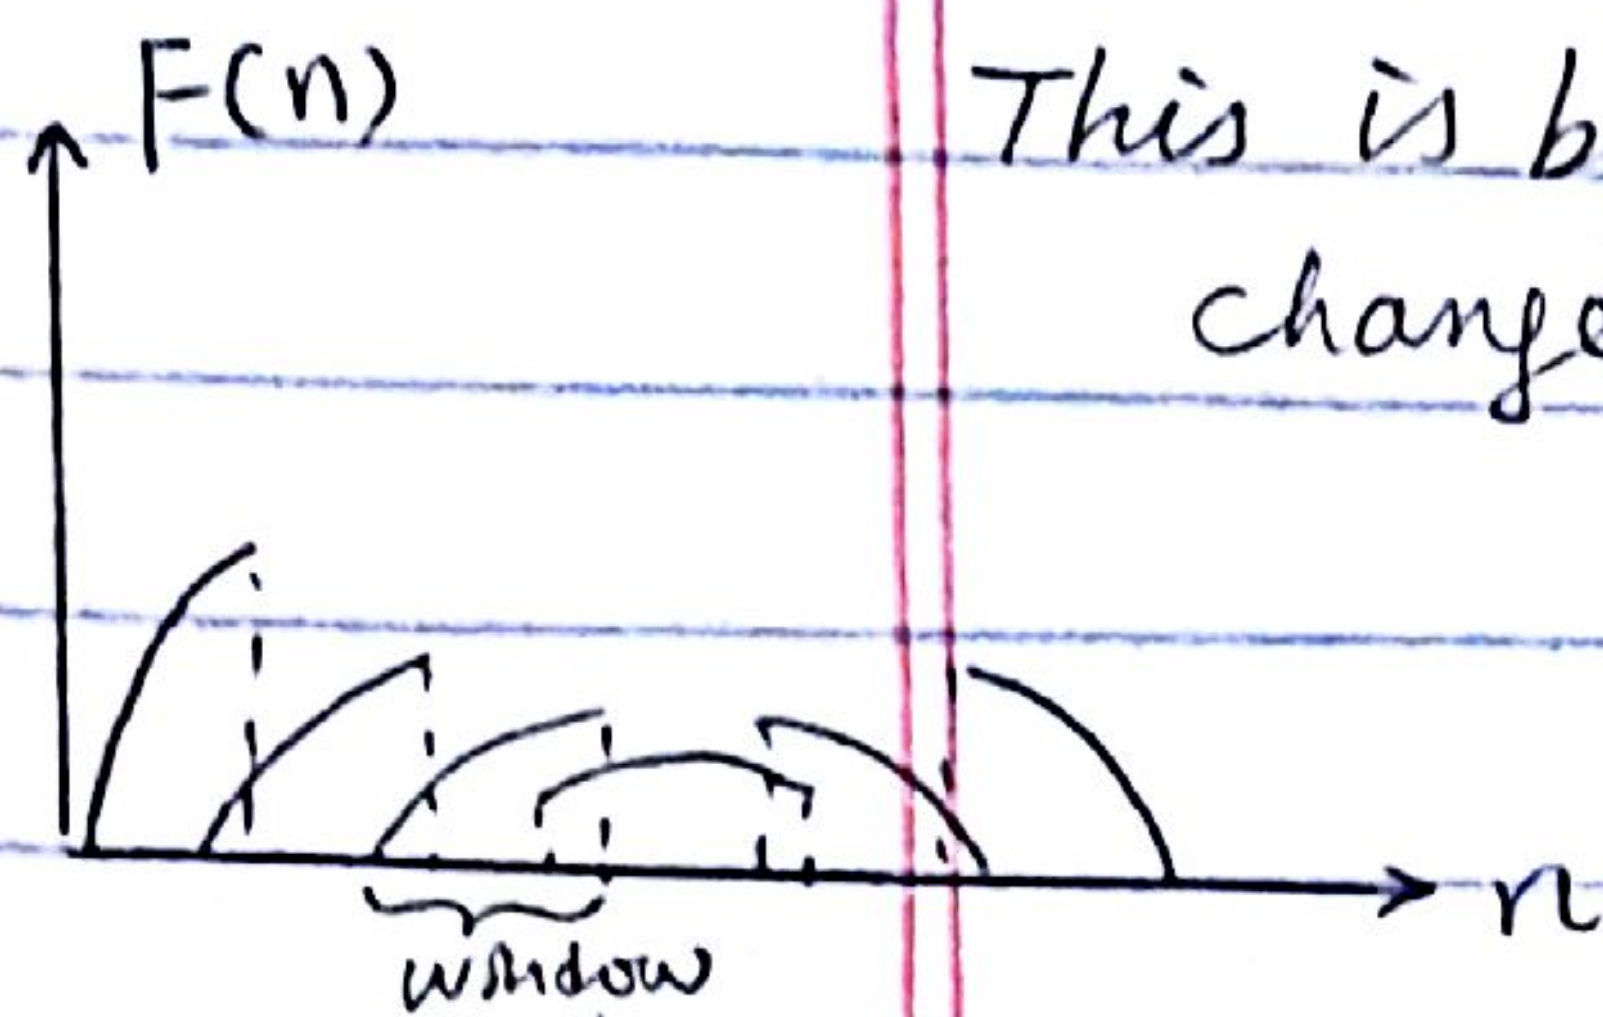 F(n)
This is b
change
n
window